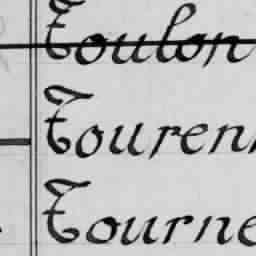 Toulon
Touren
Tourne